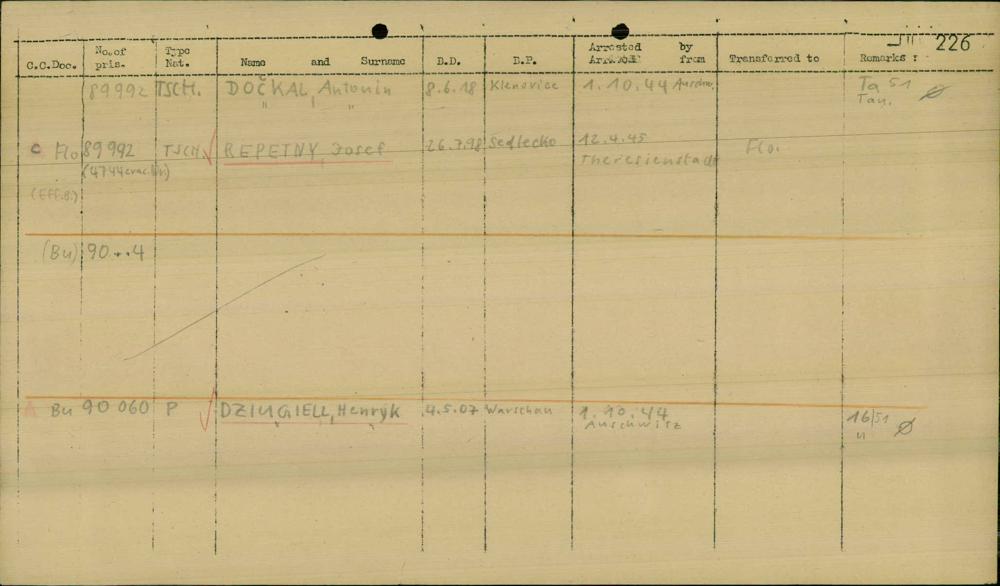 226
C.C.Doc. No. of pris. Type Nat. Name and Surname B.D. B.P. Arrested by Arrived from Transferred to Remarks :
89992 TSCH. DOČKAL, Antonin 8.6.18 Klenovice 1.10.44 Auschw. Ta 51
Tau. Ø
C Flo 89992 TSCH. REPETNY, Josef 26.7.98 Sedlecko 12.4.45 Theresienstadt Flo.
(EFF.B.)
(Bu) 90..4
Bu 90060 P DZIUGIELL, Henryk 4.5.07 Warschau 1.10.44 Auschwitz 16/51
" Ø